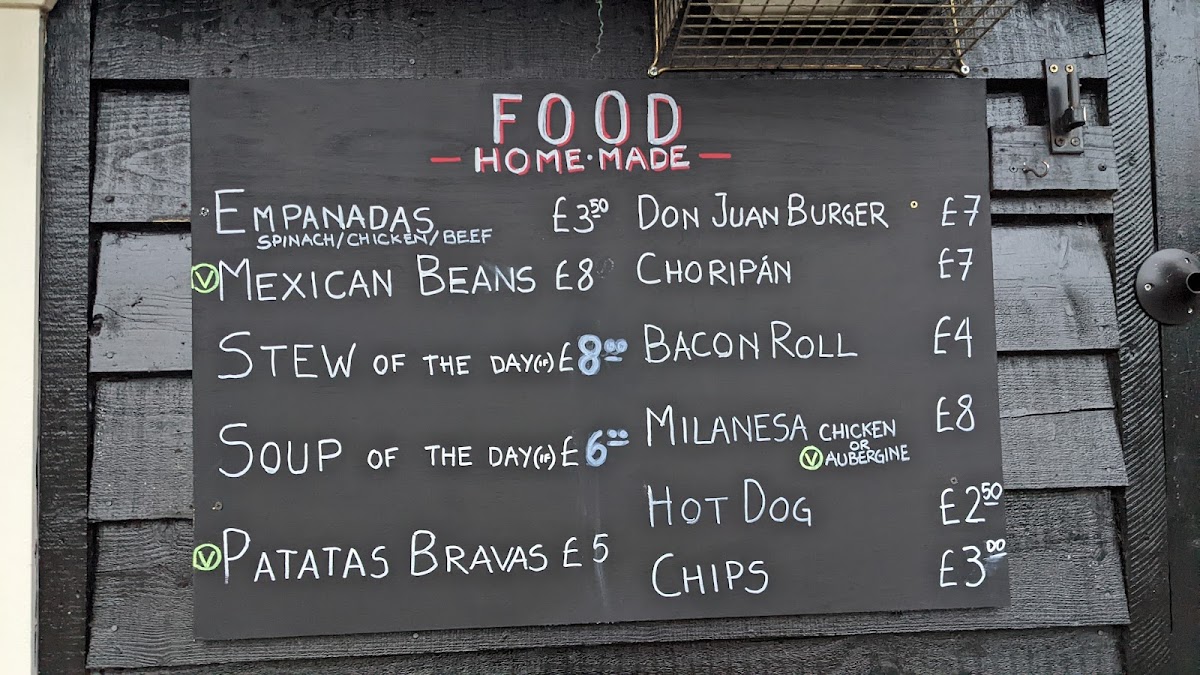 FOOD
HOME·MADE
EMPANADAS £3.50
SPINACH/CHICKEN/BEEF
Ⓥ MEXICAN BEANS £8
STEW OF THE DAY(IF) £8.00
SOUP OF THE DAY(IF) £6.00
Ⓥ PATATAS BRAVAS £5
DON JUAN BURGER £7
CHORIPÁN £7
BACON ROLL £4
MILANESA CHICKEN £8
OR
Ⓥ AUBERGINE
HOT DOG £2.50
CHIPS £3.00